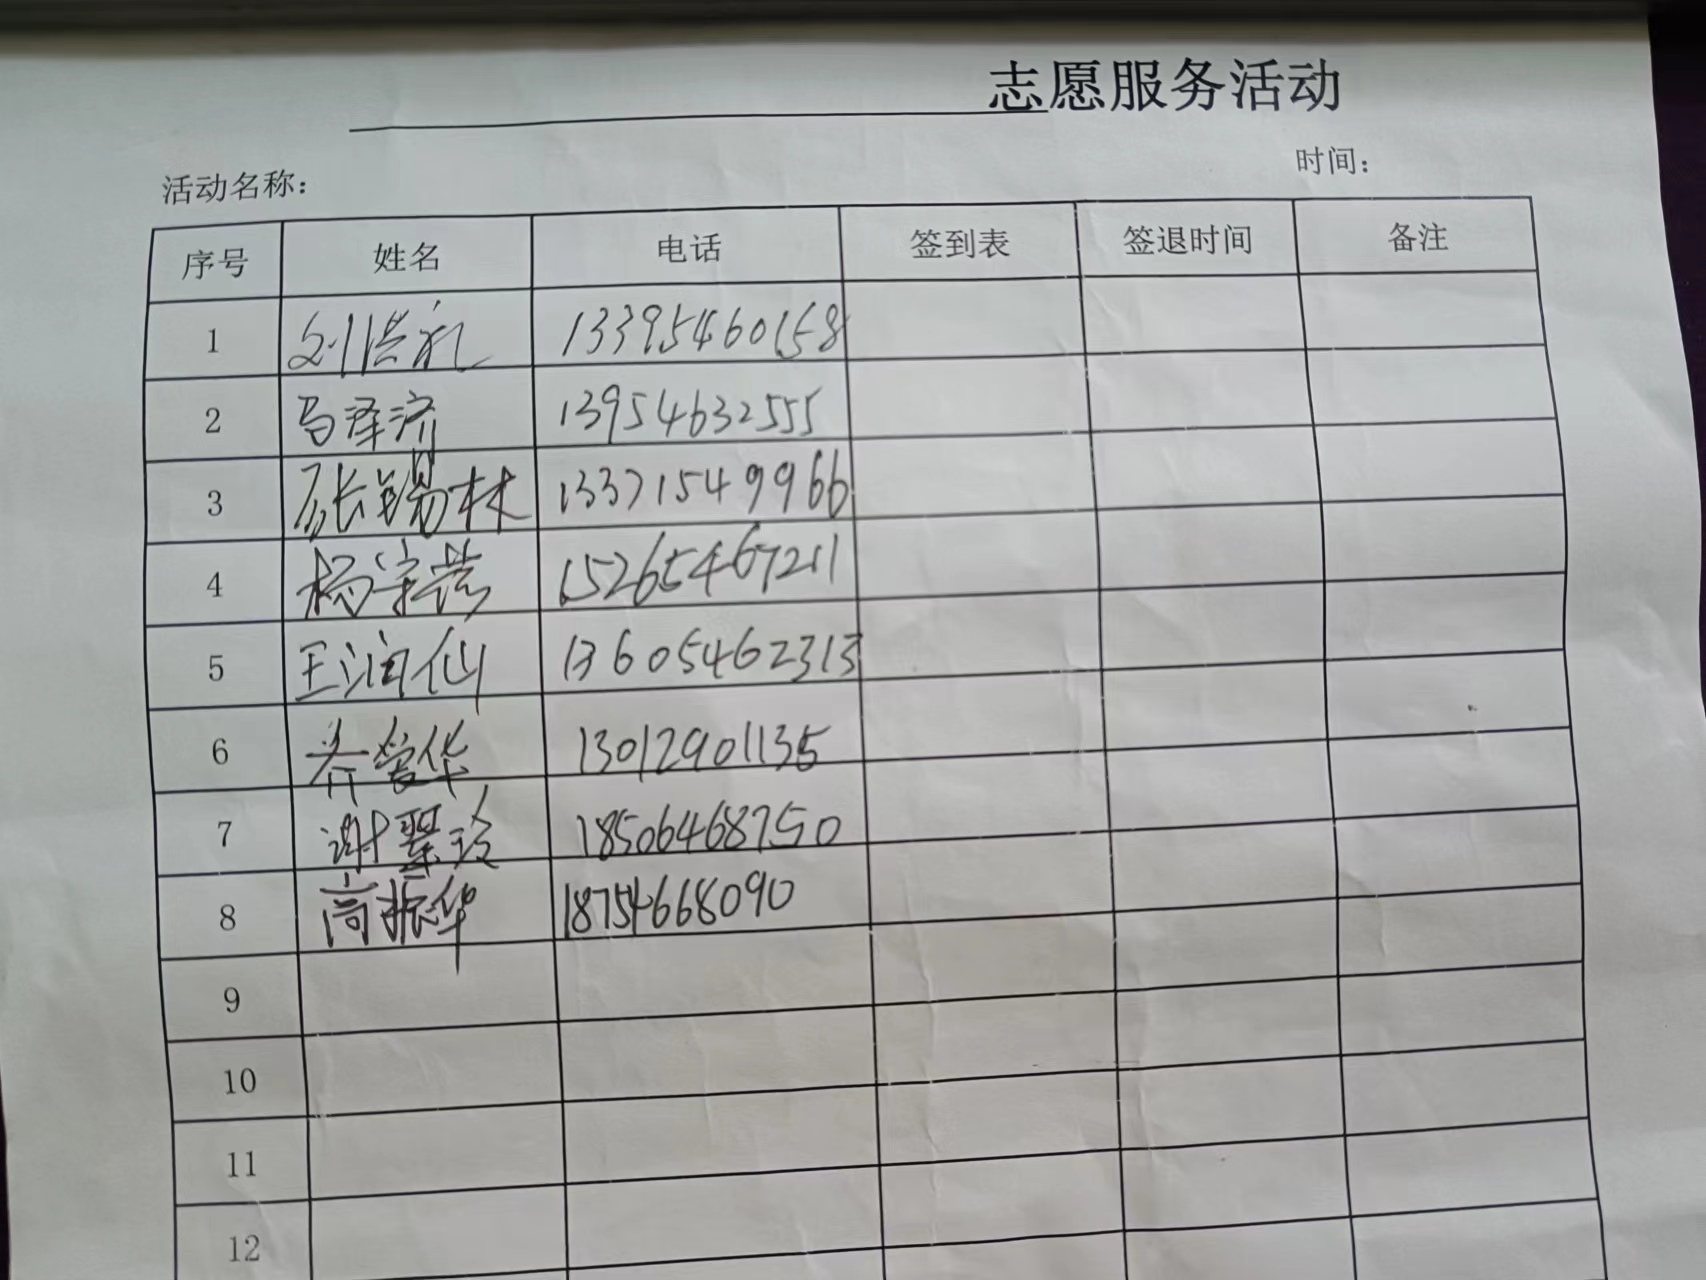 志愿服务活动
活动名称： 时间：
序号 姓名 电话 签到表 签退时间 备注
1 刘洪礼 13395460158
2 马泽济 13954632555
3 张锡林 13371549966
4 杨宗慈 15265467211
5 王润仙 13605462313
6 齐爱华 13012901135
7 谢翠玲 18506468750
8 高振华 18754668090
9
10
11
12